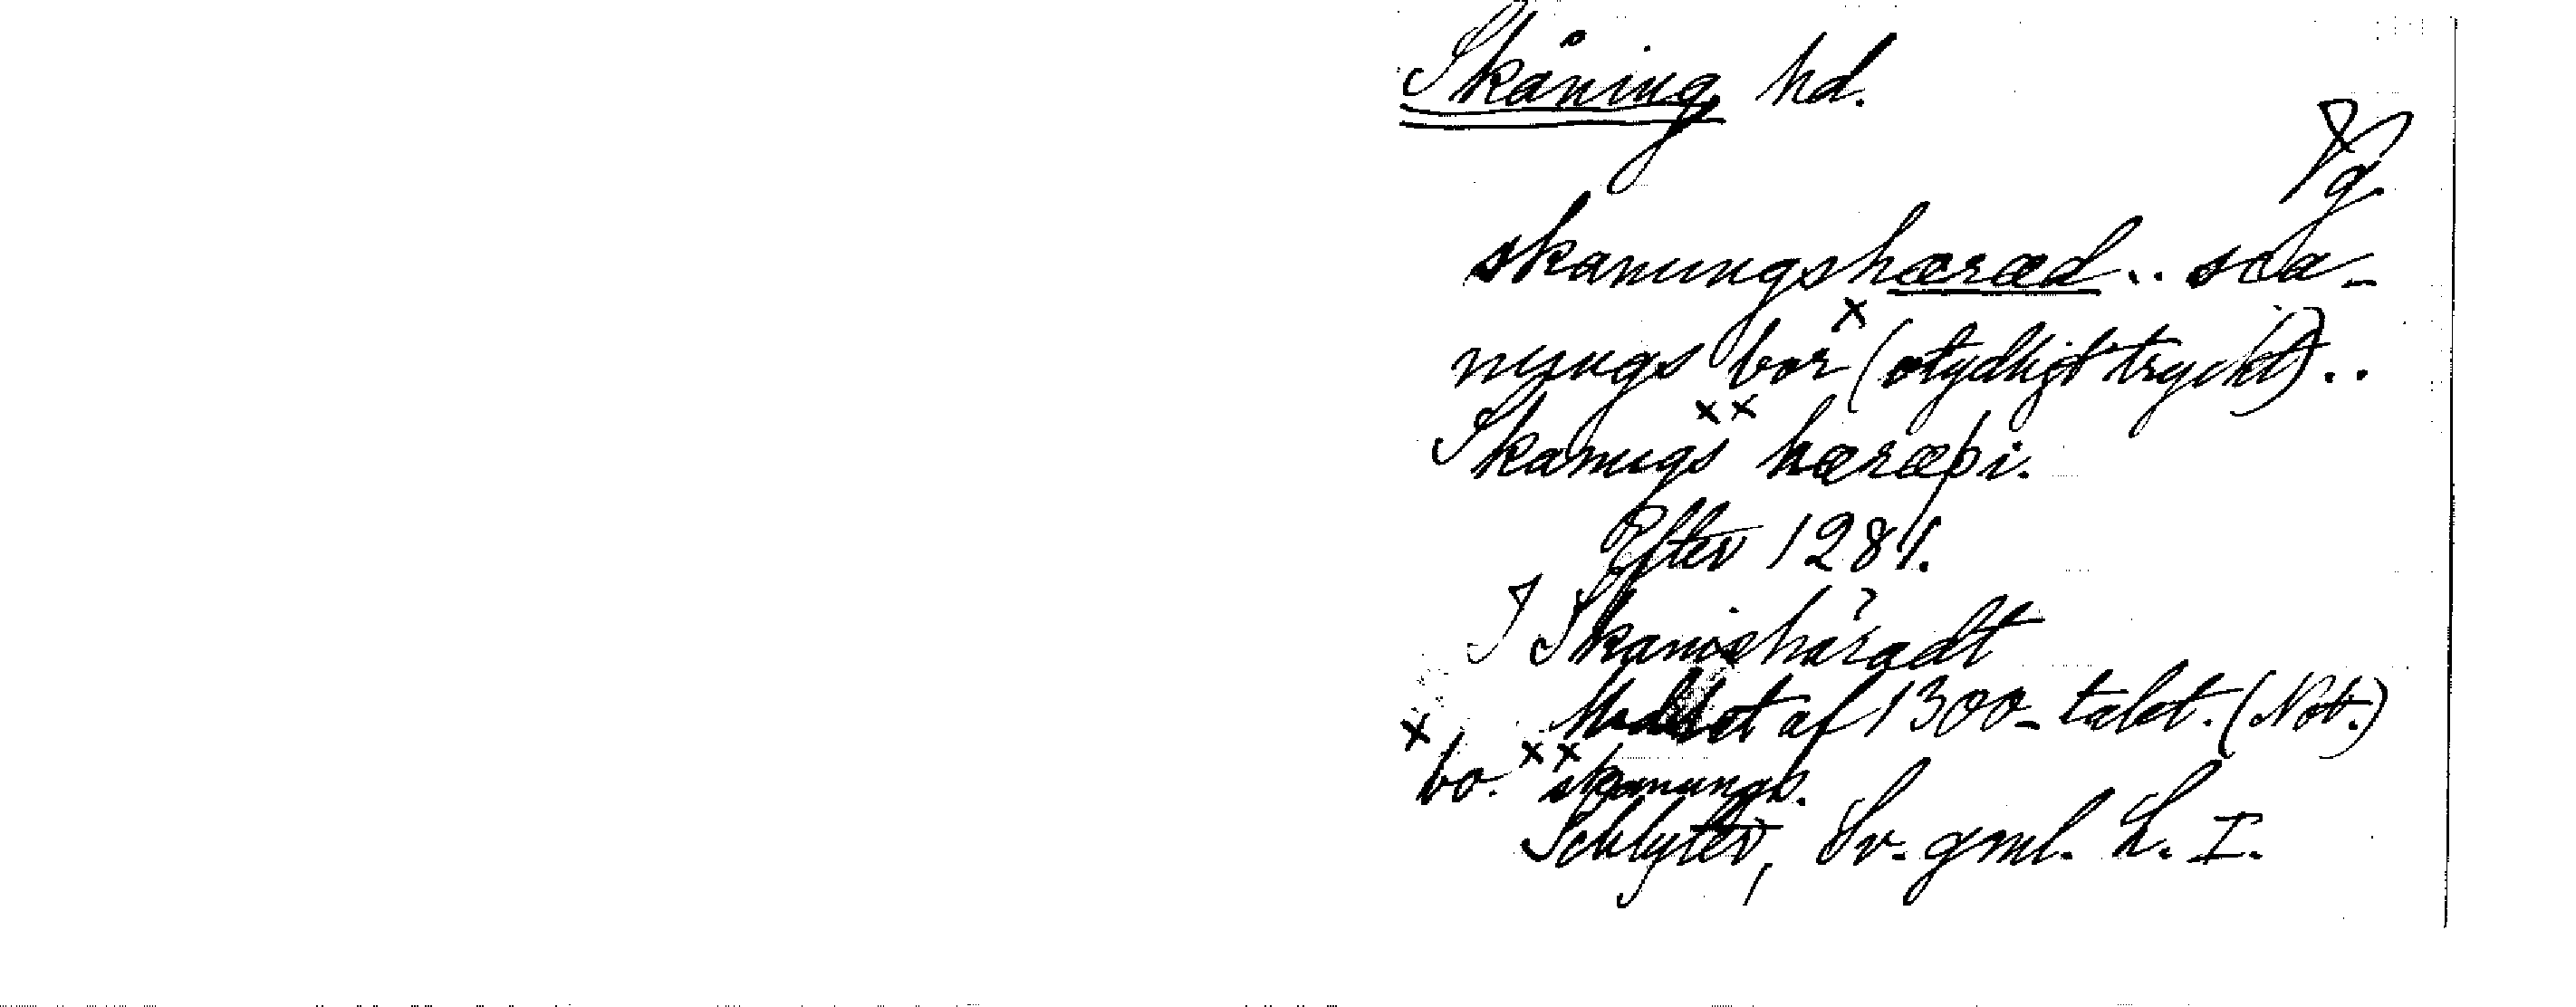 Skåning hd.
Vg.
skanungshæræd .. sca-
nungs bor x (otydligt tryckt) ..
Skanugs xx hæræþi.
Efter 1281.
I Skanishäradt
Midten af 1300-talet. (Not.)
x bo. xx skanungs.
Schlyter, Sv. gml. L. I.